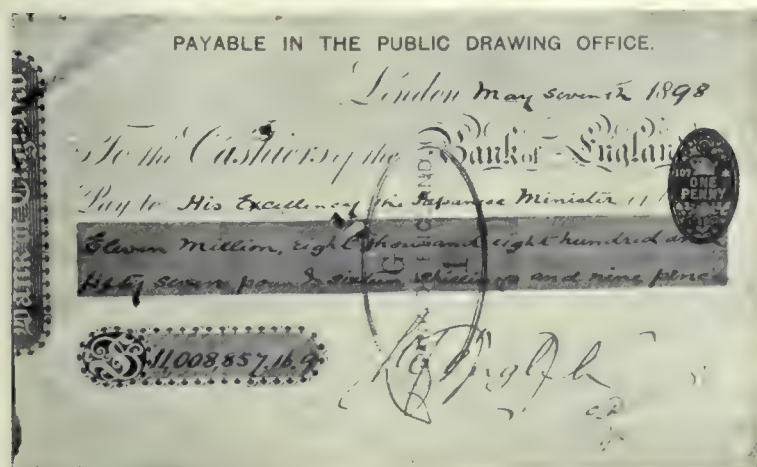 PAYABLE IN THE PUBLIC DRAWING OFFICE.
London May seventh 1898
To the Cashiers of the Bank of England
Pay to His Excellency the Japanese Minister
Eleven Million, eight thousand eight hundred and
fifty seven pounds sixteen shillings and nine pence
£11,008,857,16.9
ONE
PENNY
Bank of England